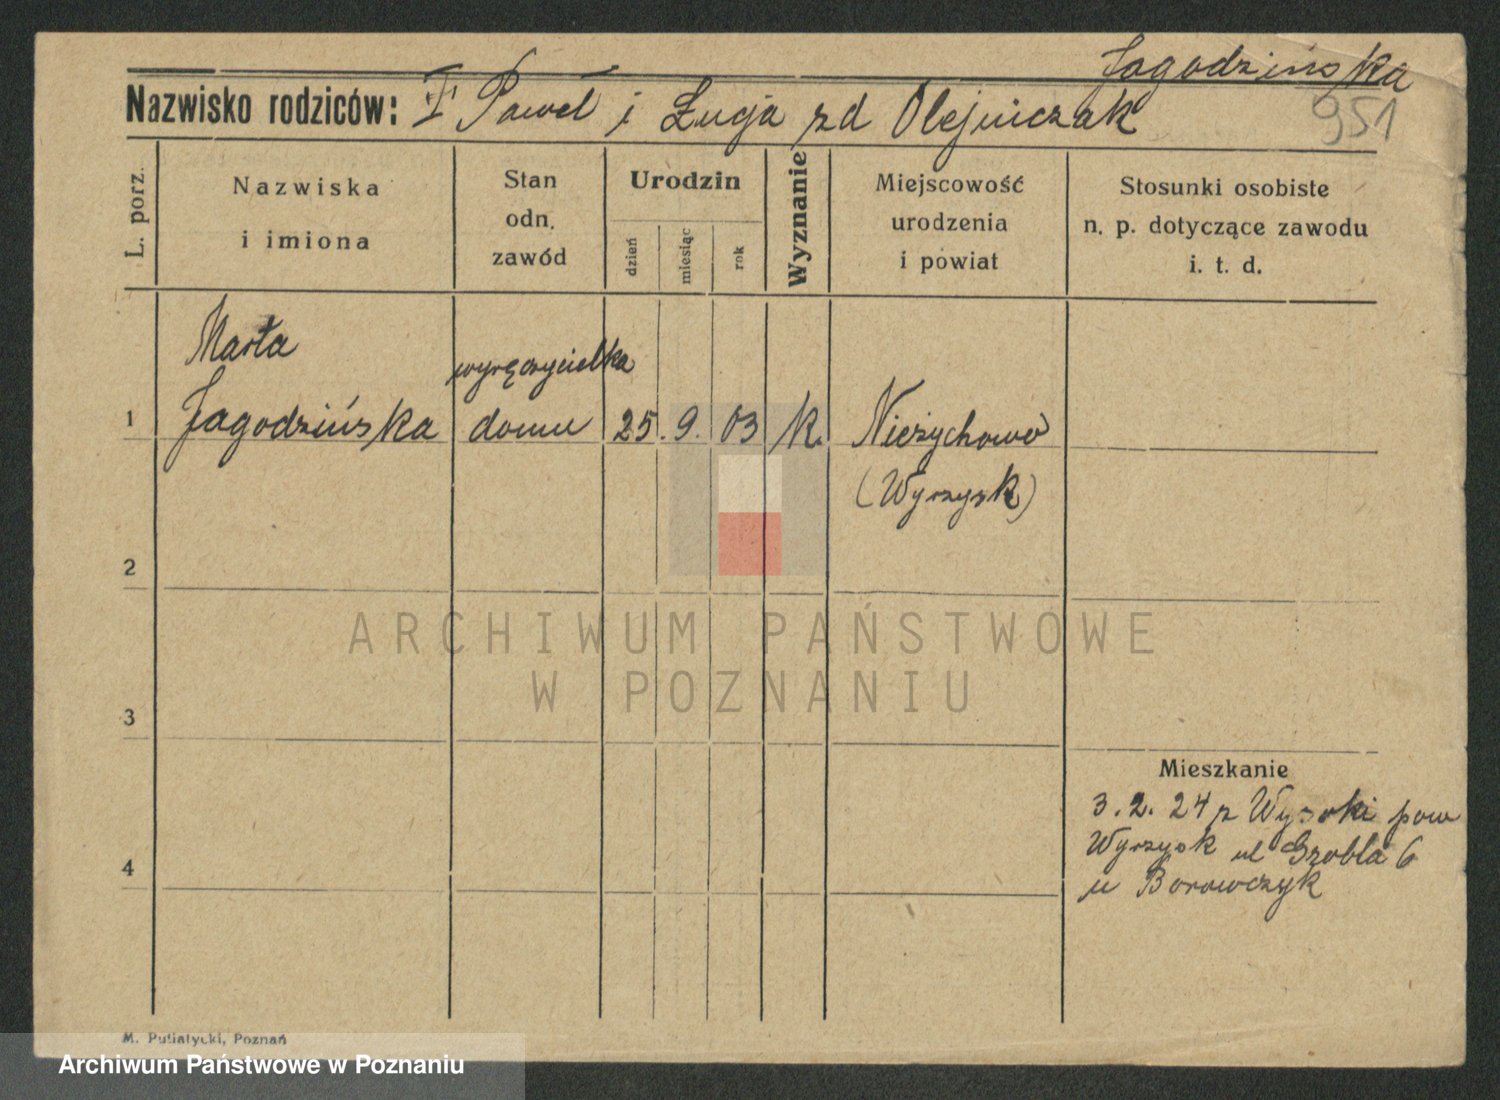 Jagodzińska
Nazwisko rodziców: I Paweł i Łucja zd Olejniczak
951
L. porz.
Nazwiska
i imiona
Stan
odn.
zawód
Urodzin
dzień
miesiąc
rok
Wyznanie
Miejscowość
urodzenia
i powiat
Stosunki osobiste
n. p. dotyczące zawodu
i. t. d.
Marta
wyręczycielka
1 Jagodzińska domu 25. 9. 03 K. Nieżychowo
(Wyrzysk)
2
ARCHIWUM PAŃSTWOWE
W POZNANIU
3
Mieszkanie
3. 2. 24 z Wysoki pow
Wyrzysk ul Grobla 6
u Borowczyk
4
M. Putiatycki, Poznań
Archiwum Państwowe w Poznaniu